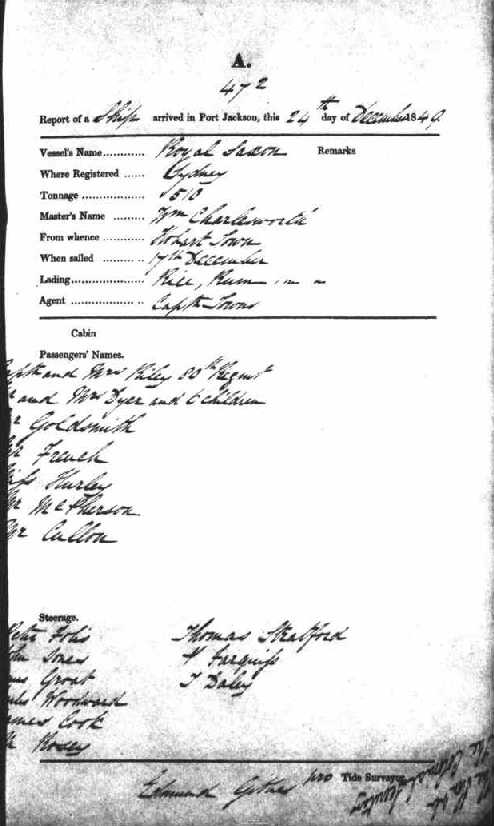 A.
472
Report of a Ship arrived in Port Jackson, this 24th day of December 1849.
Vessel's Name ............ Royal Saxon Remarks
Where Registered ...... Sydney
Tonnage ................... 510
Master's Name ......... Wm Charlesworth
From whence ............ Hobart Town
When sailed ............ 17th December
Lading ..................... Rice, Rum
Agent ..................... Captn Towns
Cabin
Passengers' Names.
Captn and Mrs Riley Regmt
and Mrs Dyer and 6 children
Goldsmith
French
Hurley
Mr McPherson
Mr Cullon
Steerage.
Peter Thomas Stratford
Jones
Groat T Daley
Woodward
James Cook
Edmund pro Tide Surveyor